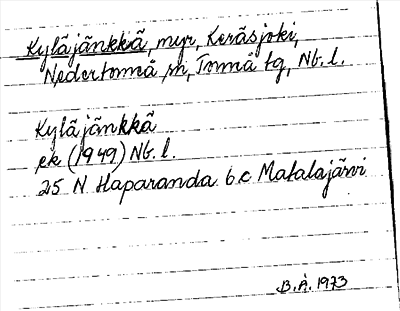 Kyläjänkkä, myr, Keräsjoki,
Nedertorneå sn, Torneå tg, Nb. l.
Kyläjänkkä
ek (1949) Nb. l.
25 N Haparanda 6 c Matalajärvi
B.Å. 1973